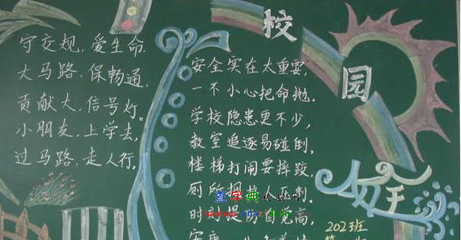 守交规,爱生命.
大马路,保畅通,
贡献大,信号灯.
小朋友,上学去,
过马路,走人行,
校园
安全
安全实在太重要,
一不小心把命抛.
学校隐患更不少,
教室追逐易碰倒.
楼梯打闹要摔跤,
厕所拥挤人压倒.
时刻提防百觉高,
202班